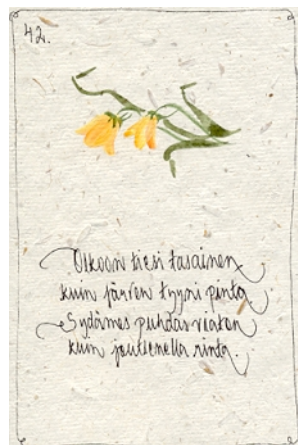 42.
Olkoon tiesi tasainen
kuin järven tyyni pinta
Sydämes puhdas viaton
kuin joutsenella rinta.